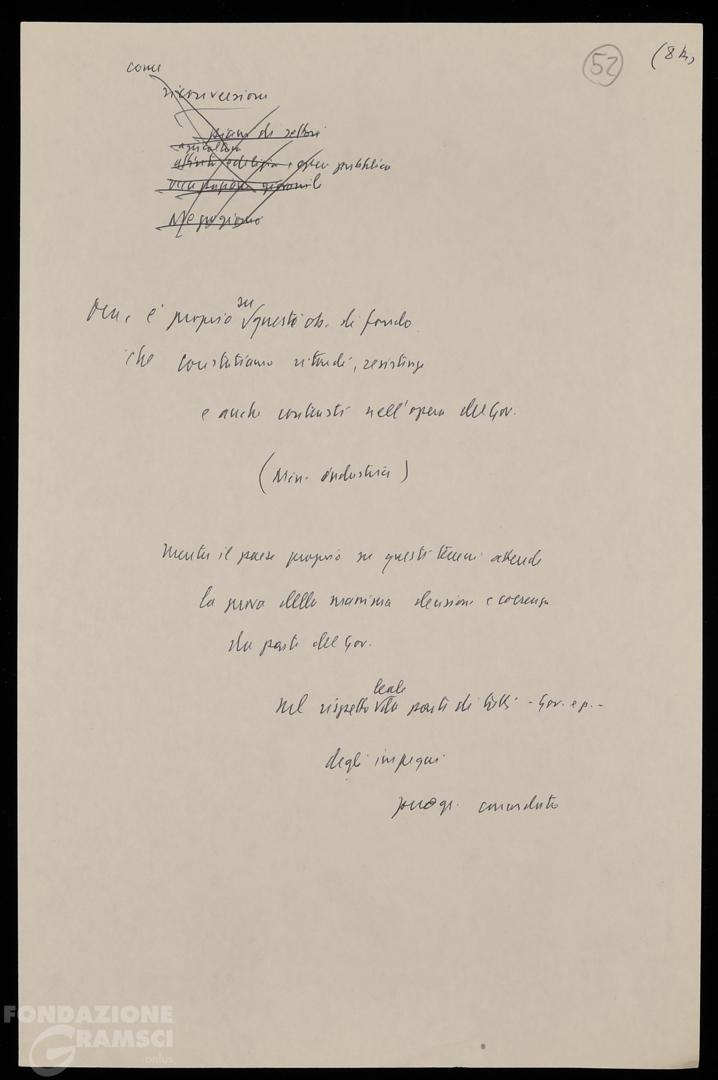 52
come
riconversione
piano di settori
agricoltura
attività edilizia e opere pubbliche
occupazione giovanile
Mezzogiorno
Ora, è proprio su questi ob. di fondo
che constatiamo ritardi, resistenze
e anche contrasti nell'opera del Gov.
(Min. industria)
mentre il paese proprio su questi terreni attende
la prova della massima decisione e coerenza
da parte del Gov.
nel rispetto leale da parte di tutti - Gov. e p. -
degli impegni
concordato
FONDAZIONE
GRAMSCI
onlus